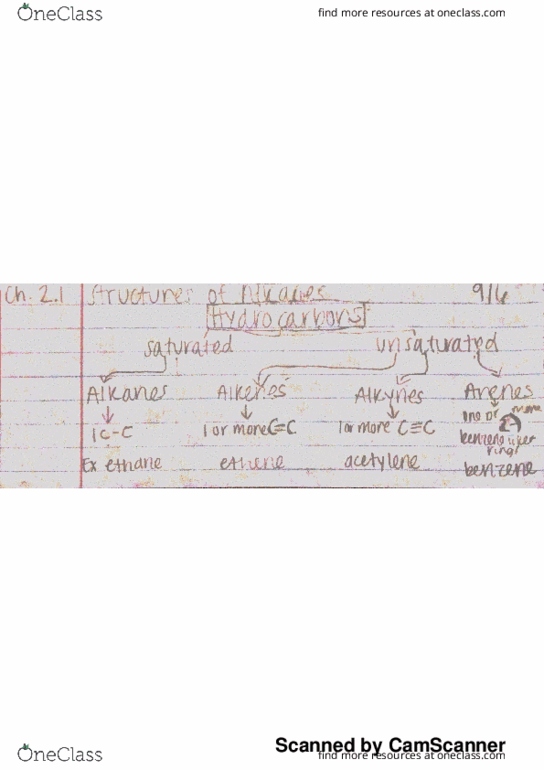 OneClass find more resources at oneclass.com
Ch. 2.1 Structures of Alkanes 9/6
Hydrocarbons
saturated unsaturated
Alkanes Alkenes Alkynes Arenes
1C-C 1 or more C=C 1 or more C≡C one or more
benzene liker
ring
Ex ethane ethene acetylene benzene
Scanned by CamScanner
OneClass find more resources at oneclass.com